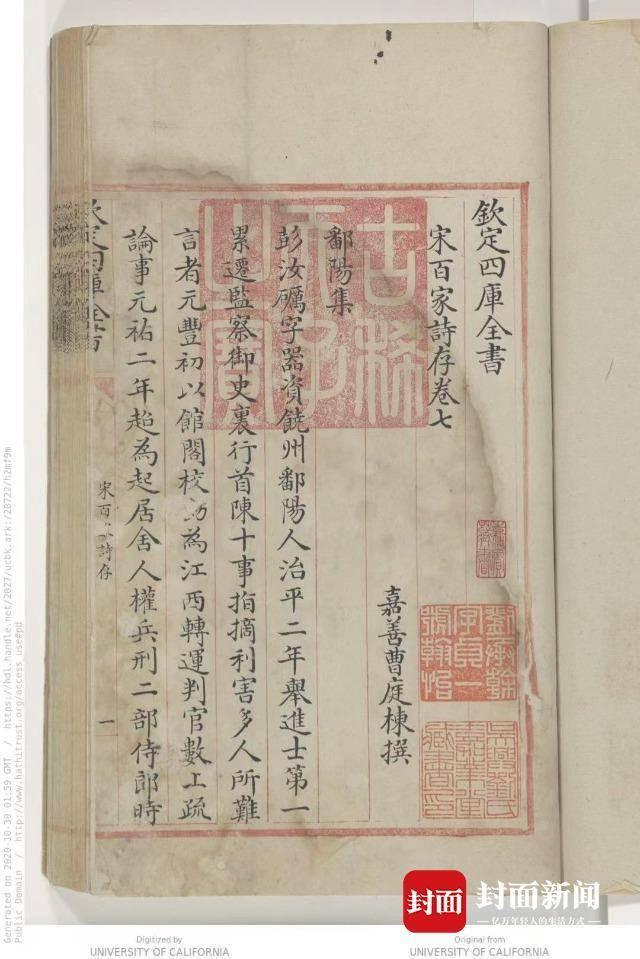 欽定四庫全書
宋百家詩存卷七
嘉善曹庭棟撰
鄱陽集
彭汝礪字器資饒州鄱陽人治平二年舉進士第一
累遷監察御史裏行首陳十事指摘利害多人所難
言者元豐初以館閣校勘為江西轉運判官數上疏
論事元祐二年起為起居舍人權兵刑二部侍郎時
欽定四庫全書
宋百家詩存
一
古稀天子之寶
劉承榦字貞一號翰怡
吳興劉氏嘉業堂藏書印
Generated on 2020-10-30 01:59 GMT / https://hdl.handle.net/2027/ucbk.ark:/28722/h2mf9m
Public Domain / http://www.hathitrust.org/access_use#pd
封面
封面新闻
亿万年轻人的生活方式
Digitized by
UNIVERSITY OF CALIFORNIA
Original from
UNIVERSITY OF CALIFORNIA